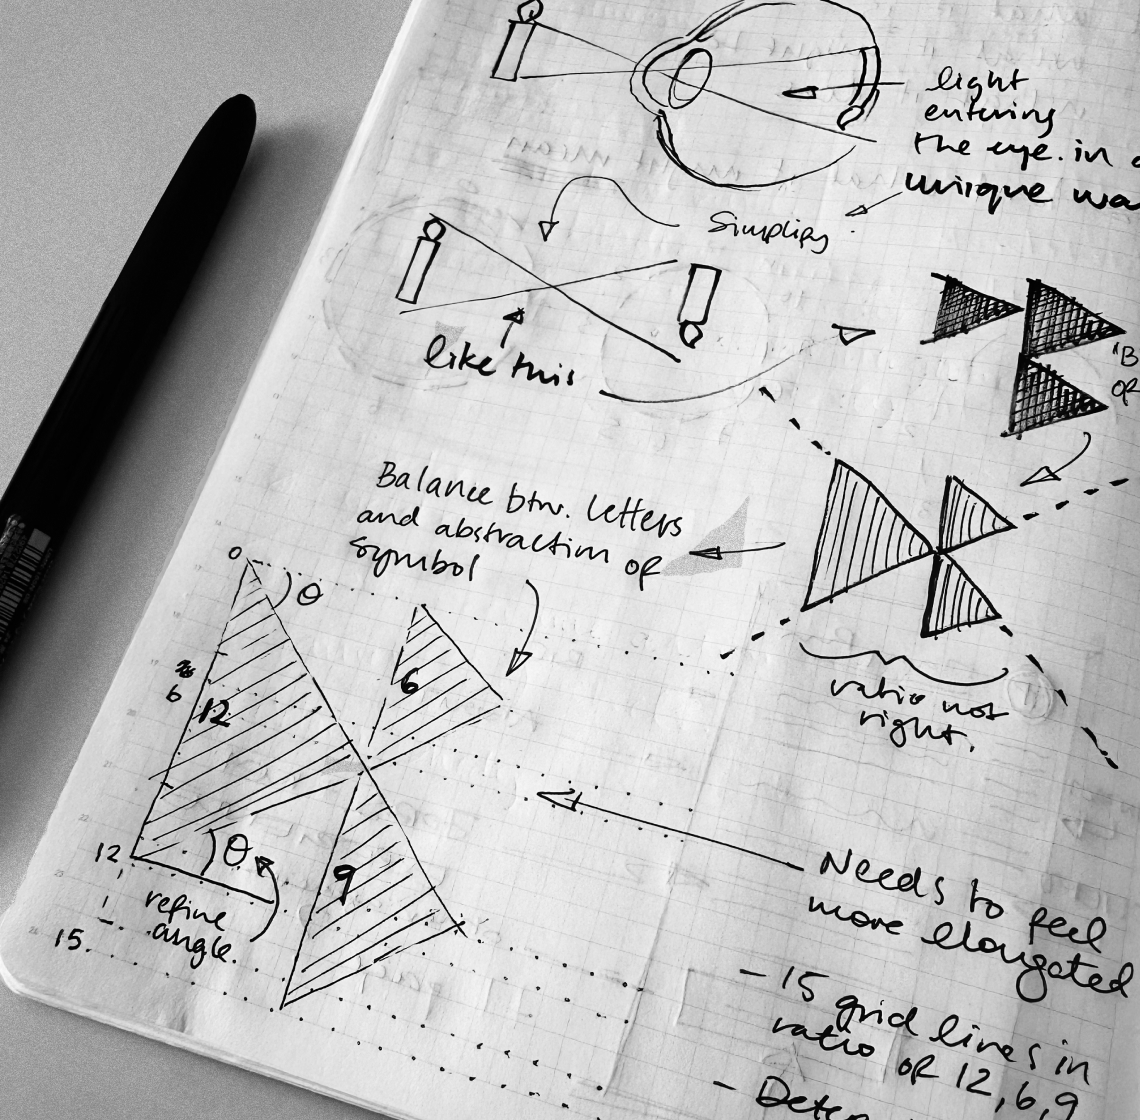 light
entering
the eye. in a
unique way
Simplify
like this
"B
OR
Balance btw. letters
and abstraction of
symbol
ratio not
right.
0
θ
6
6
12
12
θ
9
refine
angle.
15.
Needs to feel
more elongated
- 15 grid lines in
ratio of 12, 6, 9